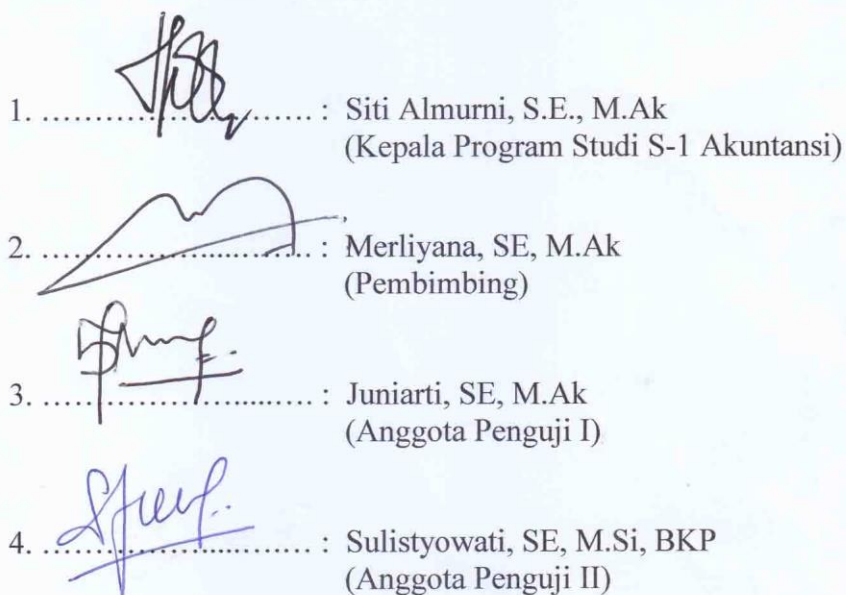 1. ........................... : Siti Almurni, S.E., M.Ak
(Kepala Program Studi S-1 Akuntansi)
2. ........................... : Merliyana, SE, M.Ak
(Pembimbing)
3. ........................... : Juniarti, SE, M.Ak
(Anggota Penguji I)
4. ........................... : Sulistyowati, SE, M.Si, BKP
(Anggota Penguji II)